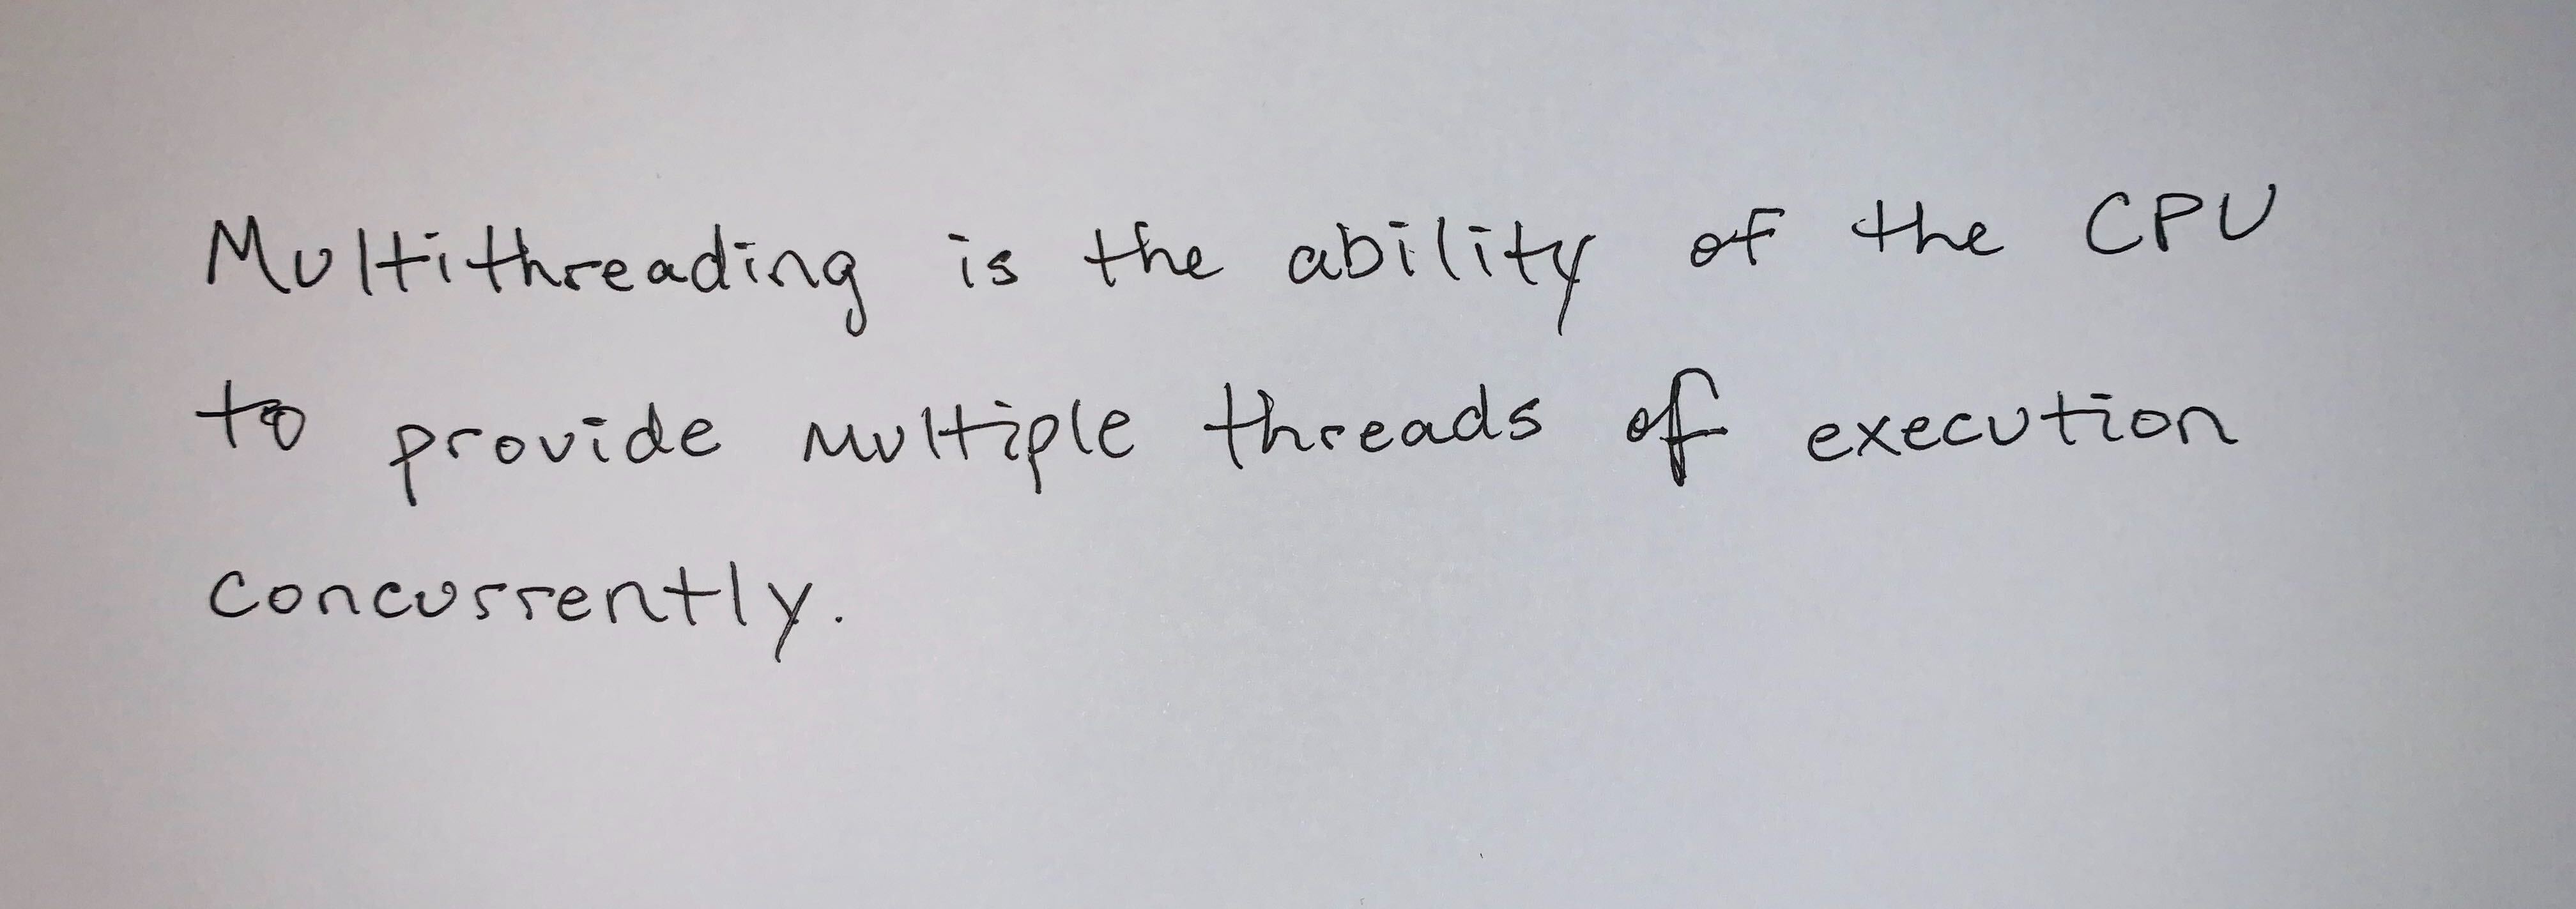 Multithreading is the ability of the CPU
to provide multiple threads of execution
concurrently.